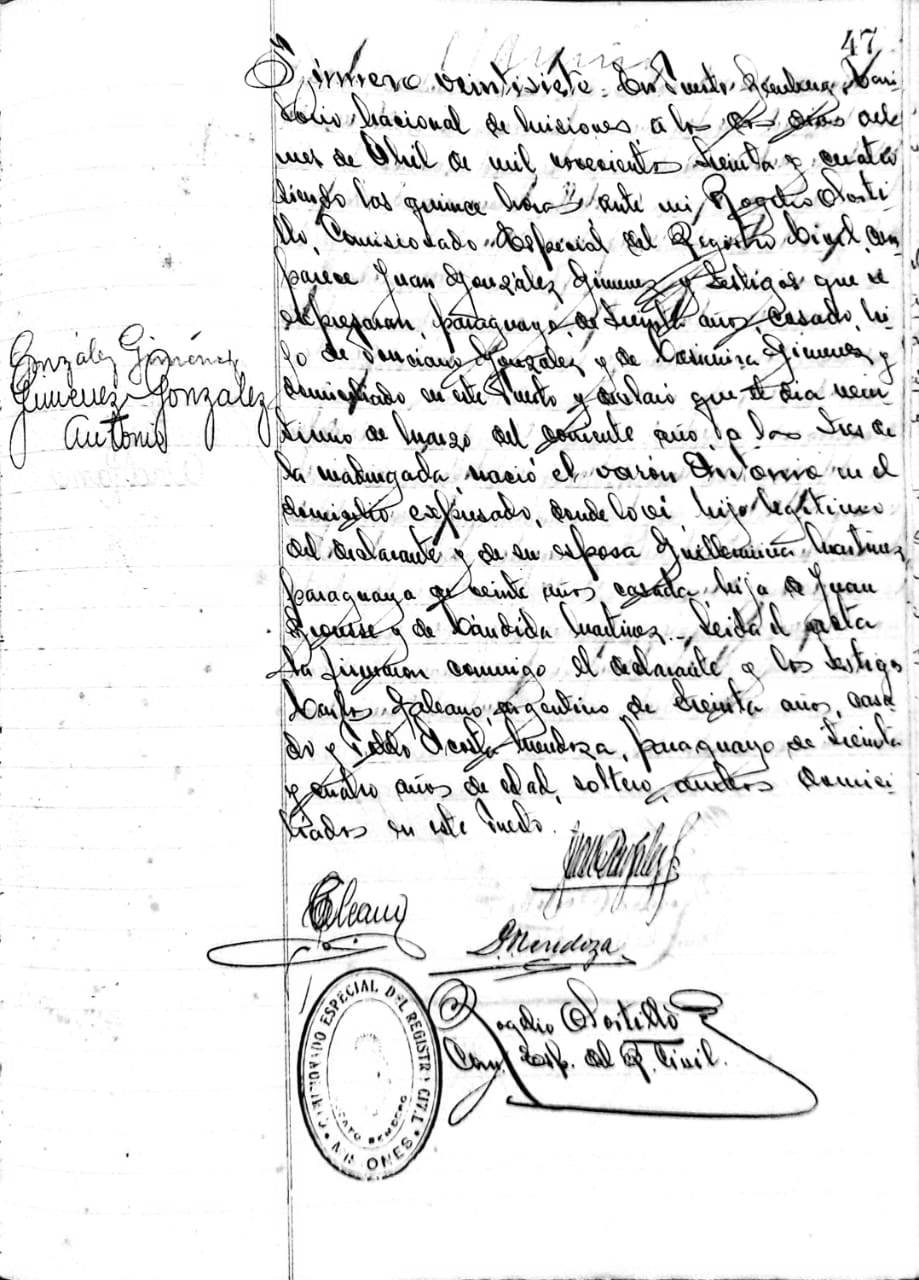 47
Número veintisiete. En Puerto Bemberg, Terri-
torio Nacional de Misiones a los dos dias del
mes de Abril de mil novecientos treinta y cuatro
siendo las quince horas ante mi Rogelio Porti-
llo, Comisionado Especial del Registro Civil, com-
parece Juan González Gimenez y testigos que se
expresarán, paraguayo de treinta años, casado, hi-
jo de Ponciano González y de Casimira Gimenez y
domiciliado en este Puerto y declaró que el dia vein
tiuno de Marzo del corriente año a las tres de
la madrugada nació el varón Antonio en el
domicilio expresado, donde lo vi hijo legitimo
del declarante y de su esposa Guillermina Martinez
paraguaya de veinte años casada hija de Juan
y de Cándida Martinez. Leida el acta
la firmaron conmigo el declarante y los testigos
Carlos Galeano, argentino de treinta años, casa
do y Pedro Acosta Mendoza, paraguayo de treinta
y cuatro años de edad, soltero, ambos domici-
liados en este Puerto.
González Giménez
Gimenez González
Antonio
Galeano
Mendoza
Rogelio Portillo
Com. Esp. del R. Civil.
COMISIONADO ESPECIAL DEL REGISTRO CIVIL
PUERTO BEMBERG
MISIONES